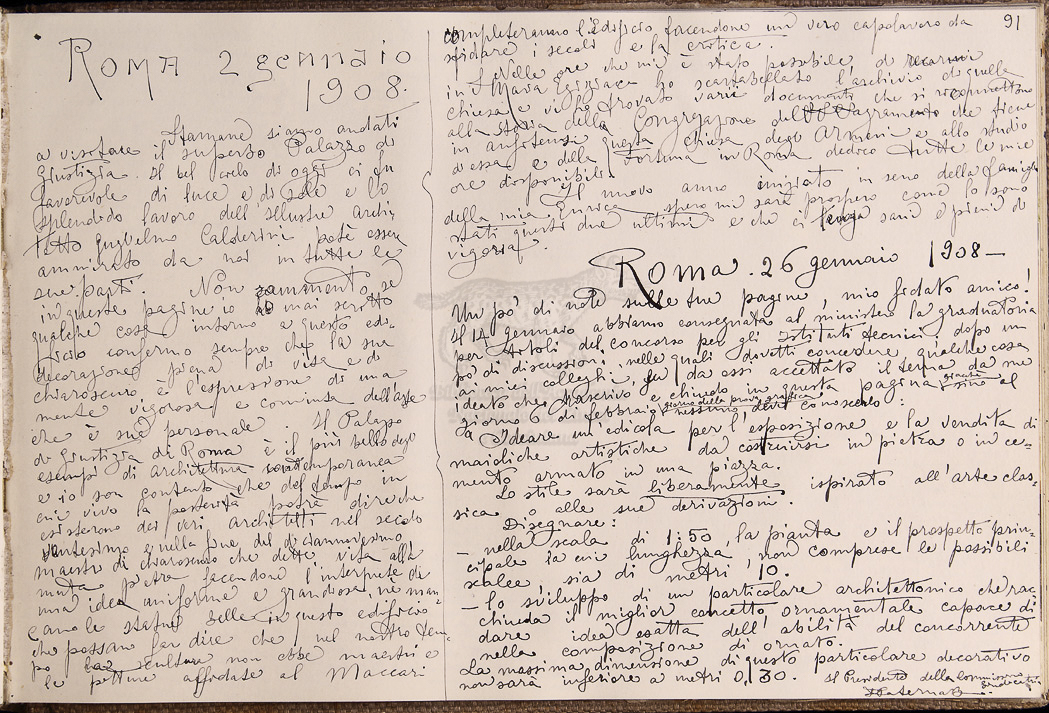 Roma 2 gennaio
1908.
Stamane siamo andati
a visitare il superbo Palazzo di
Giustizia. Il bel cielo di oggi ci fu
favorevole di luce e di sole e lo
splendido lavoro dell'illustre archi-
tetto Guglielmo Calderini potè essere
ammirato da noi in tutte le
sue parti. Non rammento se
in queste pagine io ho mai scritto
qualche cosa intorno a questo edi-
ficio confermo sempre che la sua
decorazione piena di vita e di
chiaroscuro è l'espressione di una
mente vigorosa e convinta dell'arte
che è sua personale. Il Palazzo
di Giustizia di Roma è il più bello degli
esempi di Architettura contemporanea
e io son contento che del tempo in
cui vivo la posterità potrà dire che
esisterono dei veri Architetti nel secolo
ventesimo e nella fine del diciannovesimo
maestri di chiaroscuro che dette vita alla
muta pietra facendone l'interprete di
una idea uniforme e grandiosa, nè man-
cano le statue belle in questo edificio
che possano far dire che nel nostro tem-
po la scultura non ebbe maestri e
le pitture affidate al Maccari
91
completeranno l'Edificio facendone un vero capolavoro da
sfidare i secoli e la critica.
Nelle ore che mi è stato possibile di recarmi
in S. Maria Egiziaca ho scartabellato l'archivio di quella
chiesa e vi ho trovato varii documenti che si riconnettono
alla storia della Congregazione del SS. Sagramento che tiene
in questa Chiesa degli Armeni e allo studio
d'essa e della Fortuna in Roma dedico tutte le mie
ore disponibili.
Il nuovo anno iniziato in seno della famiglia
della mia Enrica spero mi sarà prospero come lo sono
stati questi due ultimi e che ci tenga sani e pieni di
vigoria.
Roma. 26 gennaio 1908—
Un pò di note sulle tue pagine, mio fidato amico!
Il 14 gennaio abbiamo consegnata al ministero la graduatoria
per titoli del concorso per gli Istituti tecnici dopo un
pò di discussioni, nelle quali dovetti concedere qualche cosa
ai miei colleghi, fu da essi accettato il tema da me
ideato che trascrivo e chiudo in questa pagina giacchè sino al
giorno 6 di febbraio giorno della prova grafica nessuno deve conoscerlo:
"Ideare un'edicola per l'esposizione e la vendita di
maioliche artistiche da costruirsi in pietra o in ce-
mento armato in una piazza.
Lo stile sarà liberamente ispirato all'arte clas-
sica o alle sue derivazioni.
Disegnare:
– nella scala di 1:50, la pianta e il prospetto prin-
cipale la cui lunghezza, non comprese le possibili
scalee, sia di metri 10.
– lo sviluppo di un particolare architettonico che rac-
chiuda il miglior concetto ornamentale capace di
dare idea esatta dell'abilità del concorrente
nella composizione di ornato.
La massima dimensione di questo particolare decorativo
non sarà inferiore a metri 0,30.
Il Presidente della Commissione